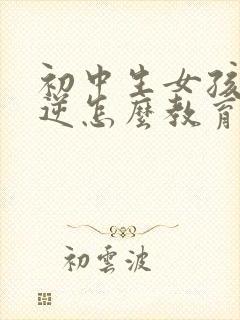 初中生女孩
逆怎麼教育
初雲波